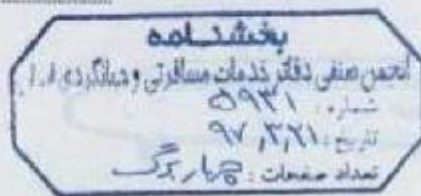 بخشنامه
انجمن صنفی دفاتر خدمات مسافرتی و جهانگردی ا.ا.
شماره: ۵۹۳۱
تاریخ: ۹۷,۳,۲۱
تعداد صفحات: چهار برگ